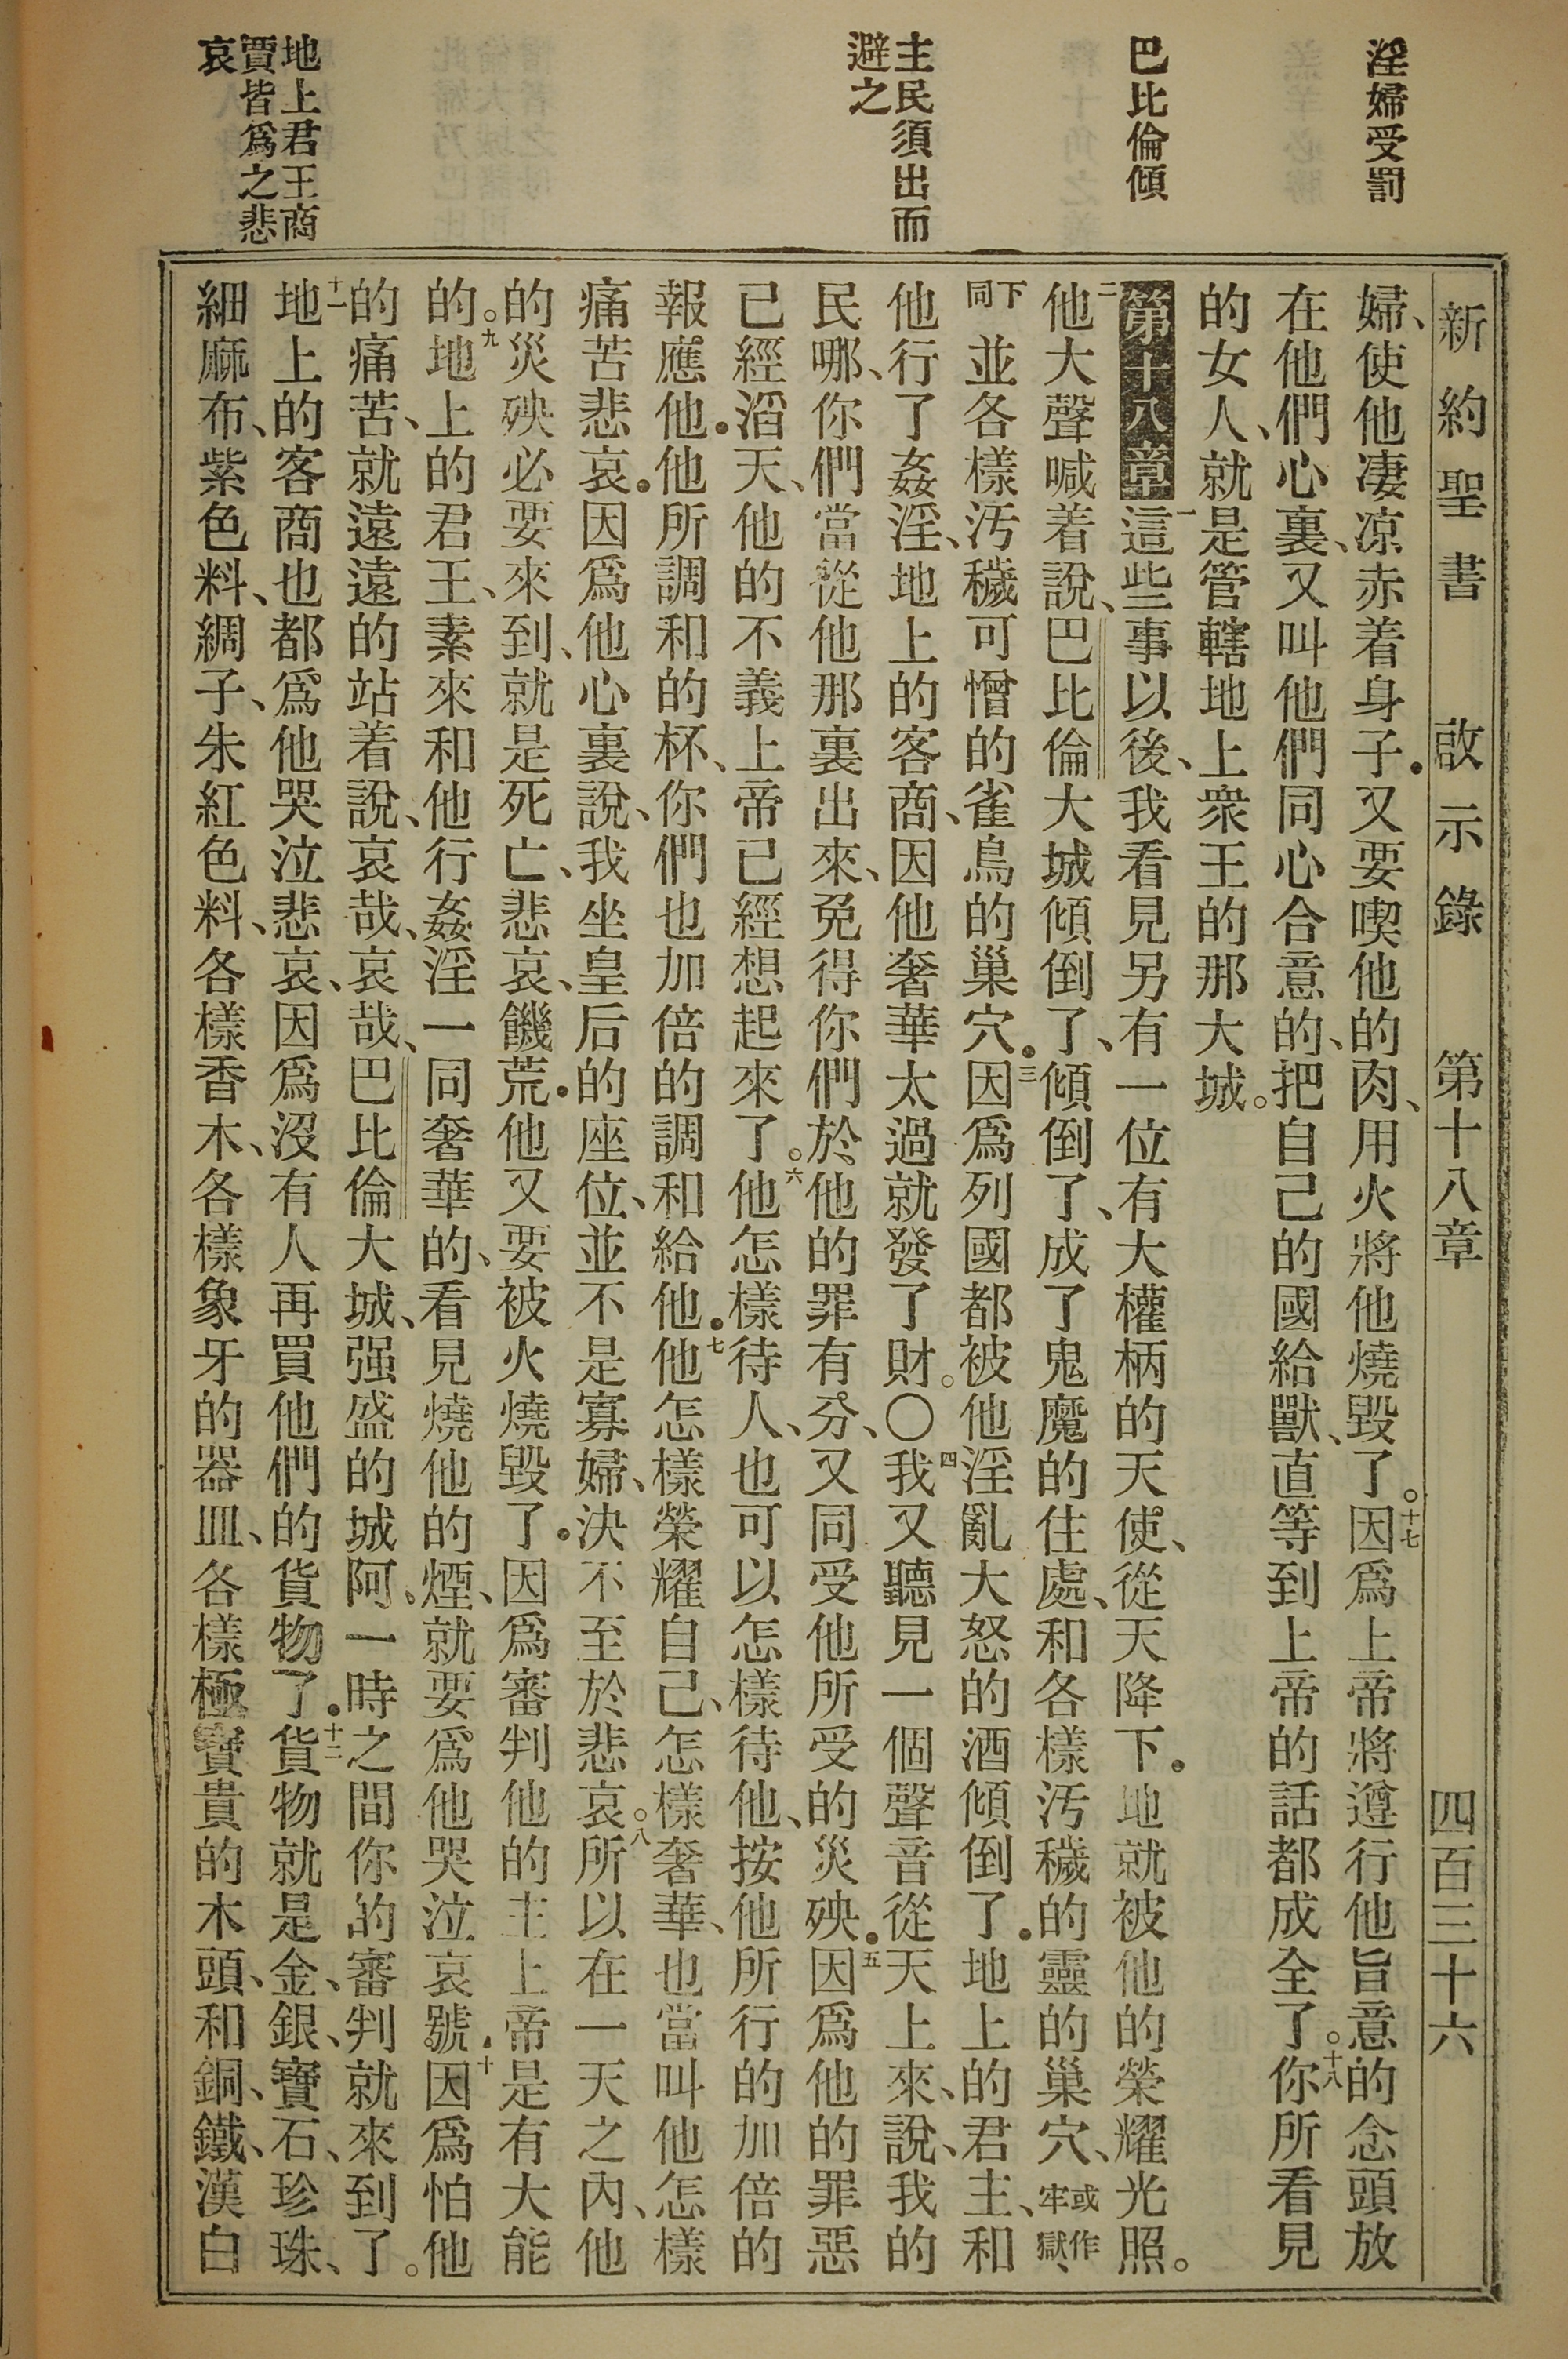 淫婦受罰
巴比倫傾
主民須出而
避之
地上君王商
賈皆爲之悲
哀
新約聖書 啟示錄 第十八章 四百三十六
婦、使他凄凉赤着身子.又要喫他的肉、用火將他燒毀了。十七因爲上帝將遵行他旨意的念頭放
在他們心裏、又叫他們同心合意的、把自己的國給獸、直等到上帝的話都成全了。十八你所看見
的女人、就是管轄地上衆王的那大城。
第十八章 一這些事以後、我看見另有一位有大權柄的天使、從天降下.地就被他的榮耀光照。
二他大聲喊着說、巴比倫大城傾倒了、傾倒了、成了鬼魔的住處、和各樣汚穢的靈的巢穴、或作牢獄、
下同並各樣汚穢可憎的雀鳥的巢穴.三因爲列國都被他淫亂大怒的酒傾倒了.地上的君主、和
他行了姦淫、地上的客商、因他奢華太過就發了財。〇四我又聽見一個聲音從天上來、說、我的
民哪、你們當從他那裏出來、免得你們於他的罪有分、又同受他所受的災殃.五因爲他的罪惡
已經滔天、他的不義上帝已經想起來了。六他怎樣待人、也可以怎樣待他、按他所行的加倍的
報應他.他所調和的杯、你們也加倍的調和給他.七他怎樣榮耀自己、怎樣奢華、也當叫他怎樣
痛苦悲哀.因爲他心裏說、我坐皇后的座位、並不是寡婦、決不至於悲哀。八所以在一天之內、他
的災殃必要來到、就是死亡、悲哀、饑荒.他又要被火燒毀了.因爲審判他的主上帝是有大能
的。九地上的君王、素來和他行姦淫一同奢華的、看見燒他的煙、就要爲他哭泣哀號.十因爲怕他
的痛苦、就遠遠的站着說、哀哉、哀哉、巴比倫大城、强盛的城阿、一時之間你的審判就來到了。
十一地上的客商也都爲他哭泣悲哀、因爲沒有人再買他們的貨物了.十二貨物就是金、銀、寶石、珍珠、
細麻布、紫色料、綢子、朱紅色料、各樣香木、各樣象牙的器皿、各樣極寶貴的木頭、和銅、鐵、漢白